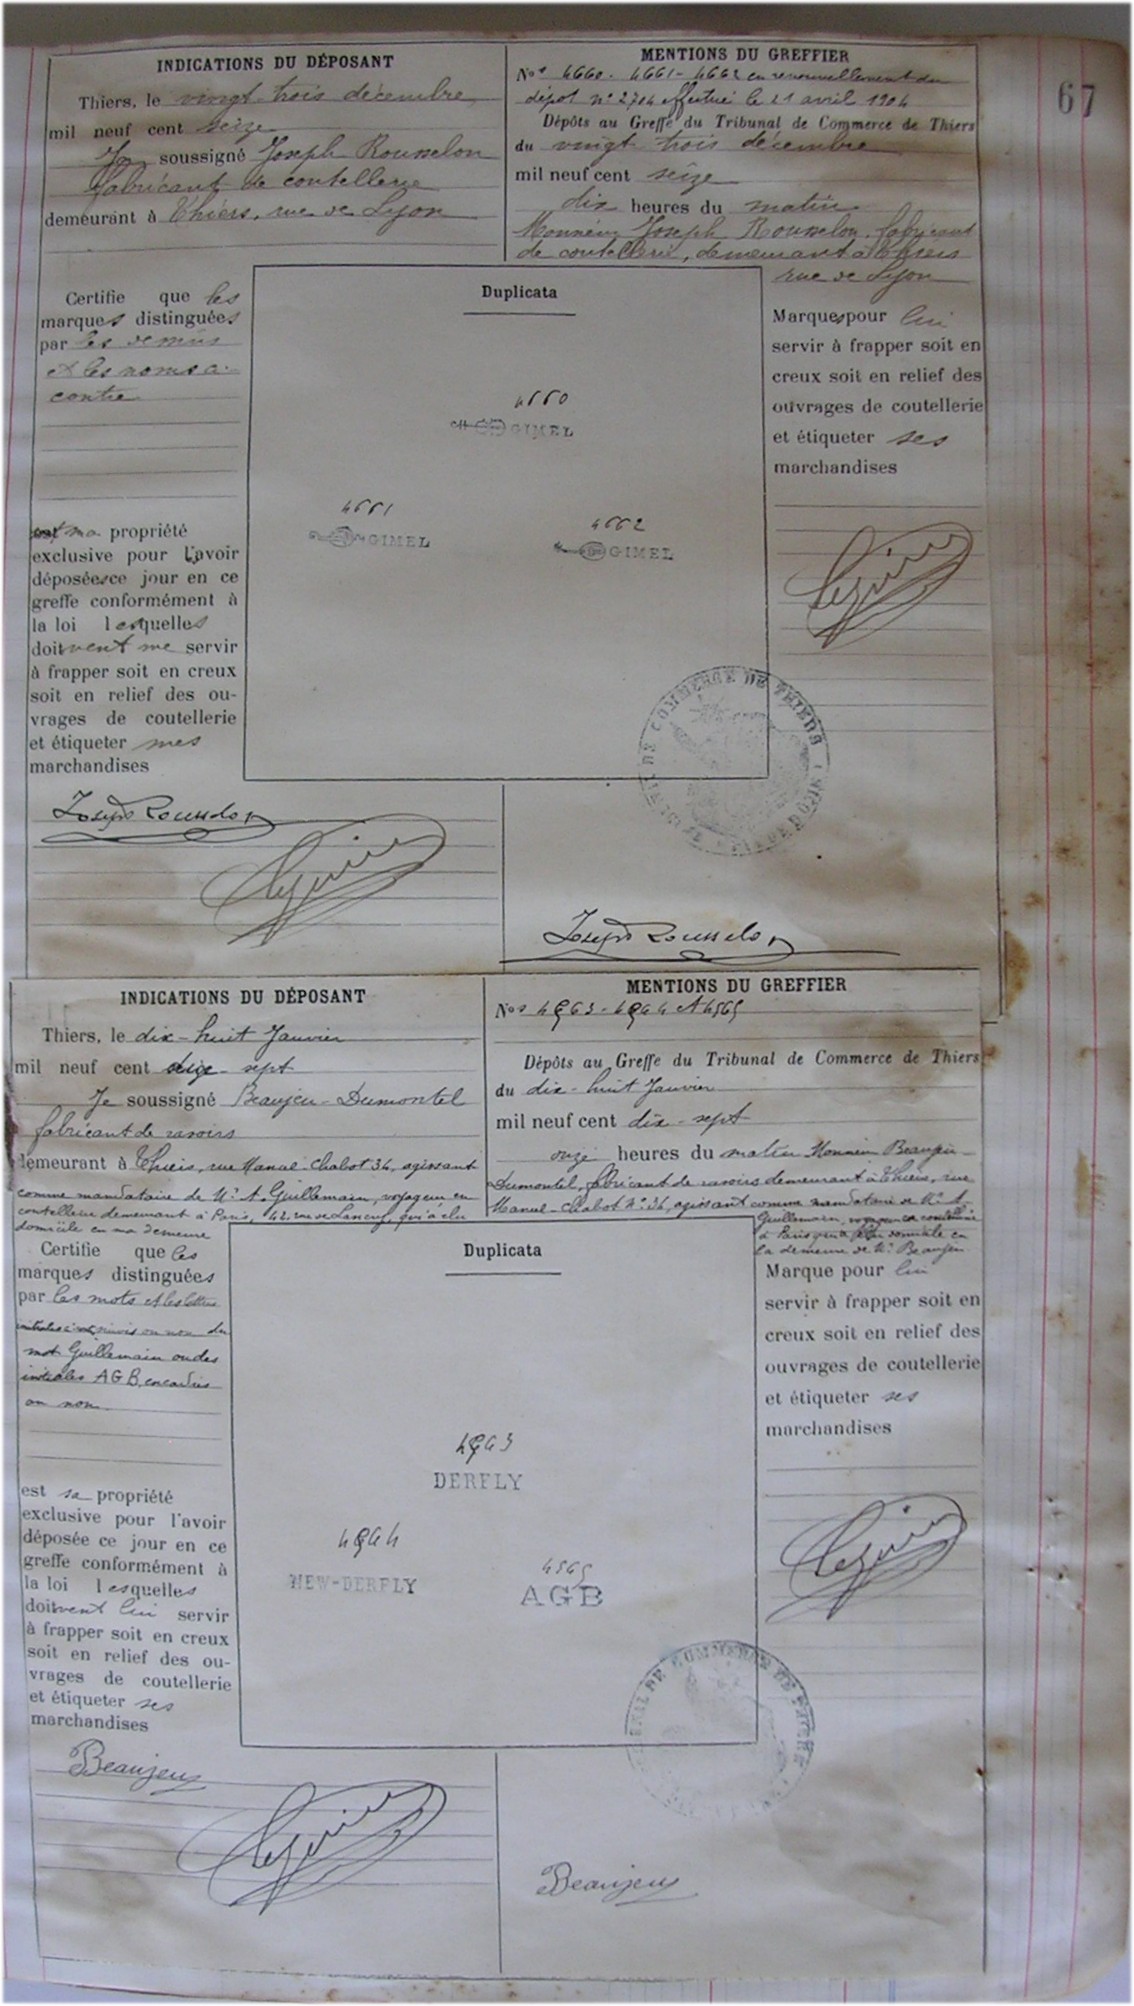 67
INDICATIONS DU DÉPOSANT
Thiers, le vingt-trois décembre
mil neuf cent seize
Je soussigné Joseph Rousselon
fabricant de coutellerie
demeurant à Thiers, rue de Lyon
MENTIONS DU GREFFIER
Nos 4660 - 4661 - 4662 en renouvellement du
dépot n° 2704 effectué le 21 avril 1904
Dépôts au Greffe du Tribunal de Commerce de Thiers
du vingt trois décembre
mil neuf cent seize
dix heures du matin
Monsieur Joseph Rousselon, fabricant
de coutellerie, demeurant à Thiers
rue de Lyon
Certifie que les
marques distinguées
par les
et les noms ci-
contre
ma propriété
exclusive pour l'avoir
déposées ce jour en ce
greffe conformément à
la loi lesquelles
doivent me servir
à frapper soit en creux
soit en relief des ou-
vrages de coutellerie
et étiqueter mes
marchandises
Duplicata
4660
GIMEL
4661
GIMEL
4662
GIMEL
Marques pour lui
servir à frapper soit en
creux soit en relief des
ouvrages de coutellerie
et étiqueter ses
marchandises
DE COMMERCE DE THIERS
Joseph Rousselon
Joseph Rousselon
INDICATIONS DU DÉPOSANT
Thiers, le dix-huit Janvier
mil neuf cent dix-sept
Je soussigné Beaujeu-Dumontel
fabricant de rasoirs
demeurant à Thiers, rue Manuel-Chabot 36, agissant
comme mandataire de Mr A. Guillemain, voyageur en
coutellerie demeurant à Paris, 42, rue de qui a élu
domicile en ma demeure
MENTIONS DU GREFFIER
Nos 4563 - 4564 et 4565
Dépôts au Greffe du Tribunal de Commerce de Thiers
du dix-huit Janvier
mil neuf cent dix-sept
onze heures du matin Monsieur Beaujeu-
Dumontel, fabricant de rasoirs demeurant à Thiers, rue
Manuel-Chabot N° 36, agissant comme mandataire de Mr A.
Guillemain, voyageur en coutellerie
à Paris qui a élu domicile en
la demeure de Mr Beaujeu
Certifie que les
marques distinguées
par les mots et les lettres
initiales suivis ou non du
mot Guillemain ou des
initiales AGB, encadrés
ou non
est sa propriété
exclusive pour l'avoir
déposée ce jour en ce
greffe conformément à
la loi lesquelles
doivent lui servir
à frapper soit en creux
soit en relief des ou-
vrages de coutellerie
et étiqueter ses
marchandises
Duplicata
4563
DERFLY
4564
NEW-DERFLY
4565
AGB
Marque pour lui
servir à frapper soit en
creux soit en relief des
ouvrages de coutellerie
et étiqueter ses
marchandises
Beaujeu
Beaujeu